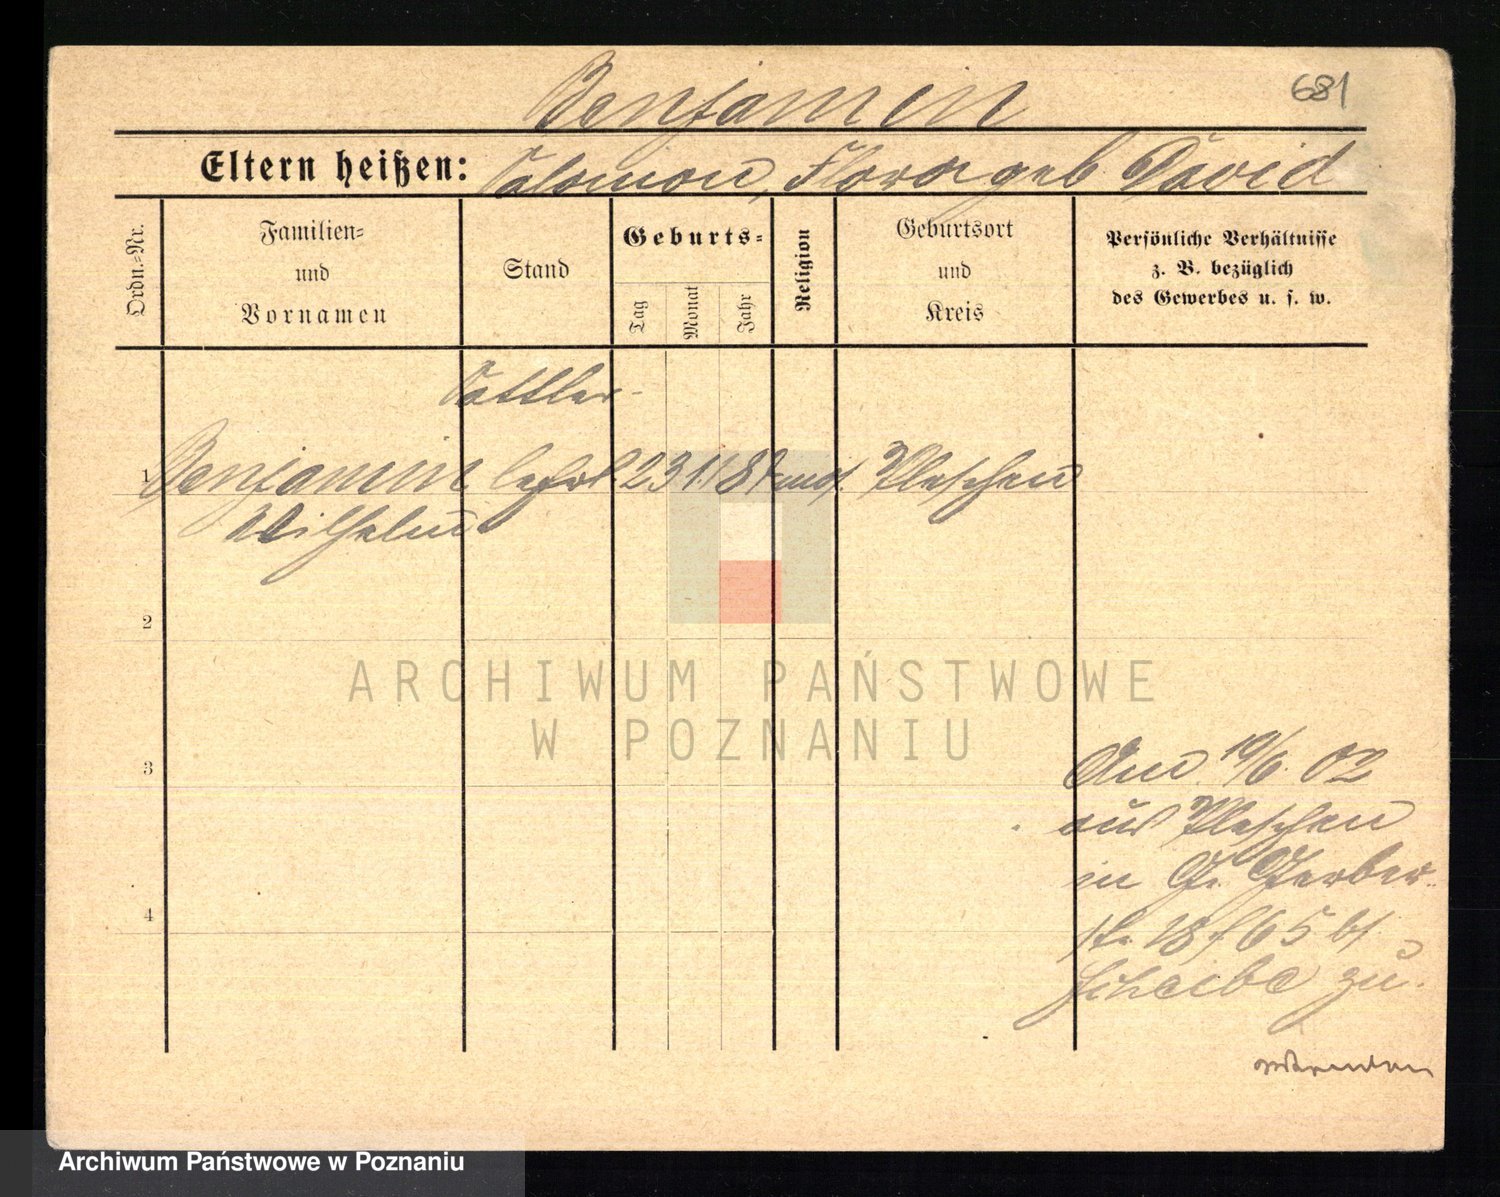 Benjamin
681
Eltern heißen: Salomon, Flora geb David
Ordn.=Nr.
Familien=
und
Vornamen
Stand
Geburts=
Tag
Monat
Jahr
Religion
Geburtsort
und
Kreis
Persönliche Verhältnisse
z. B. bezüglich
des Gewerbes u. s. w.
Sattler-
1 Benjamin lehrl 23 1 mos. Pleschen
Wilhelm
2
ARCHIWUM PAŃSTWOWE
W POZNANIU
3
4
Am 19/6. 02
aus Pleschen
in Gr. Gerber-
str. 18 bei
Scheibe zu.
Archiwum Państwowe w Poznaniu